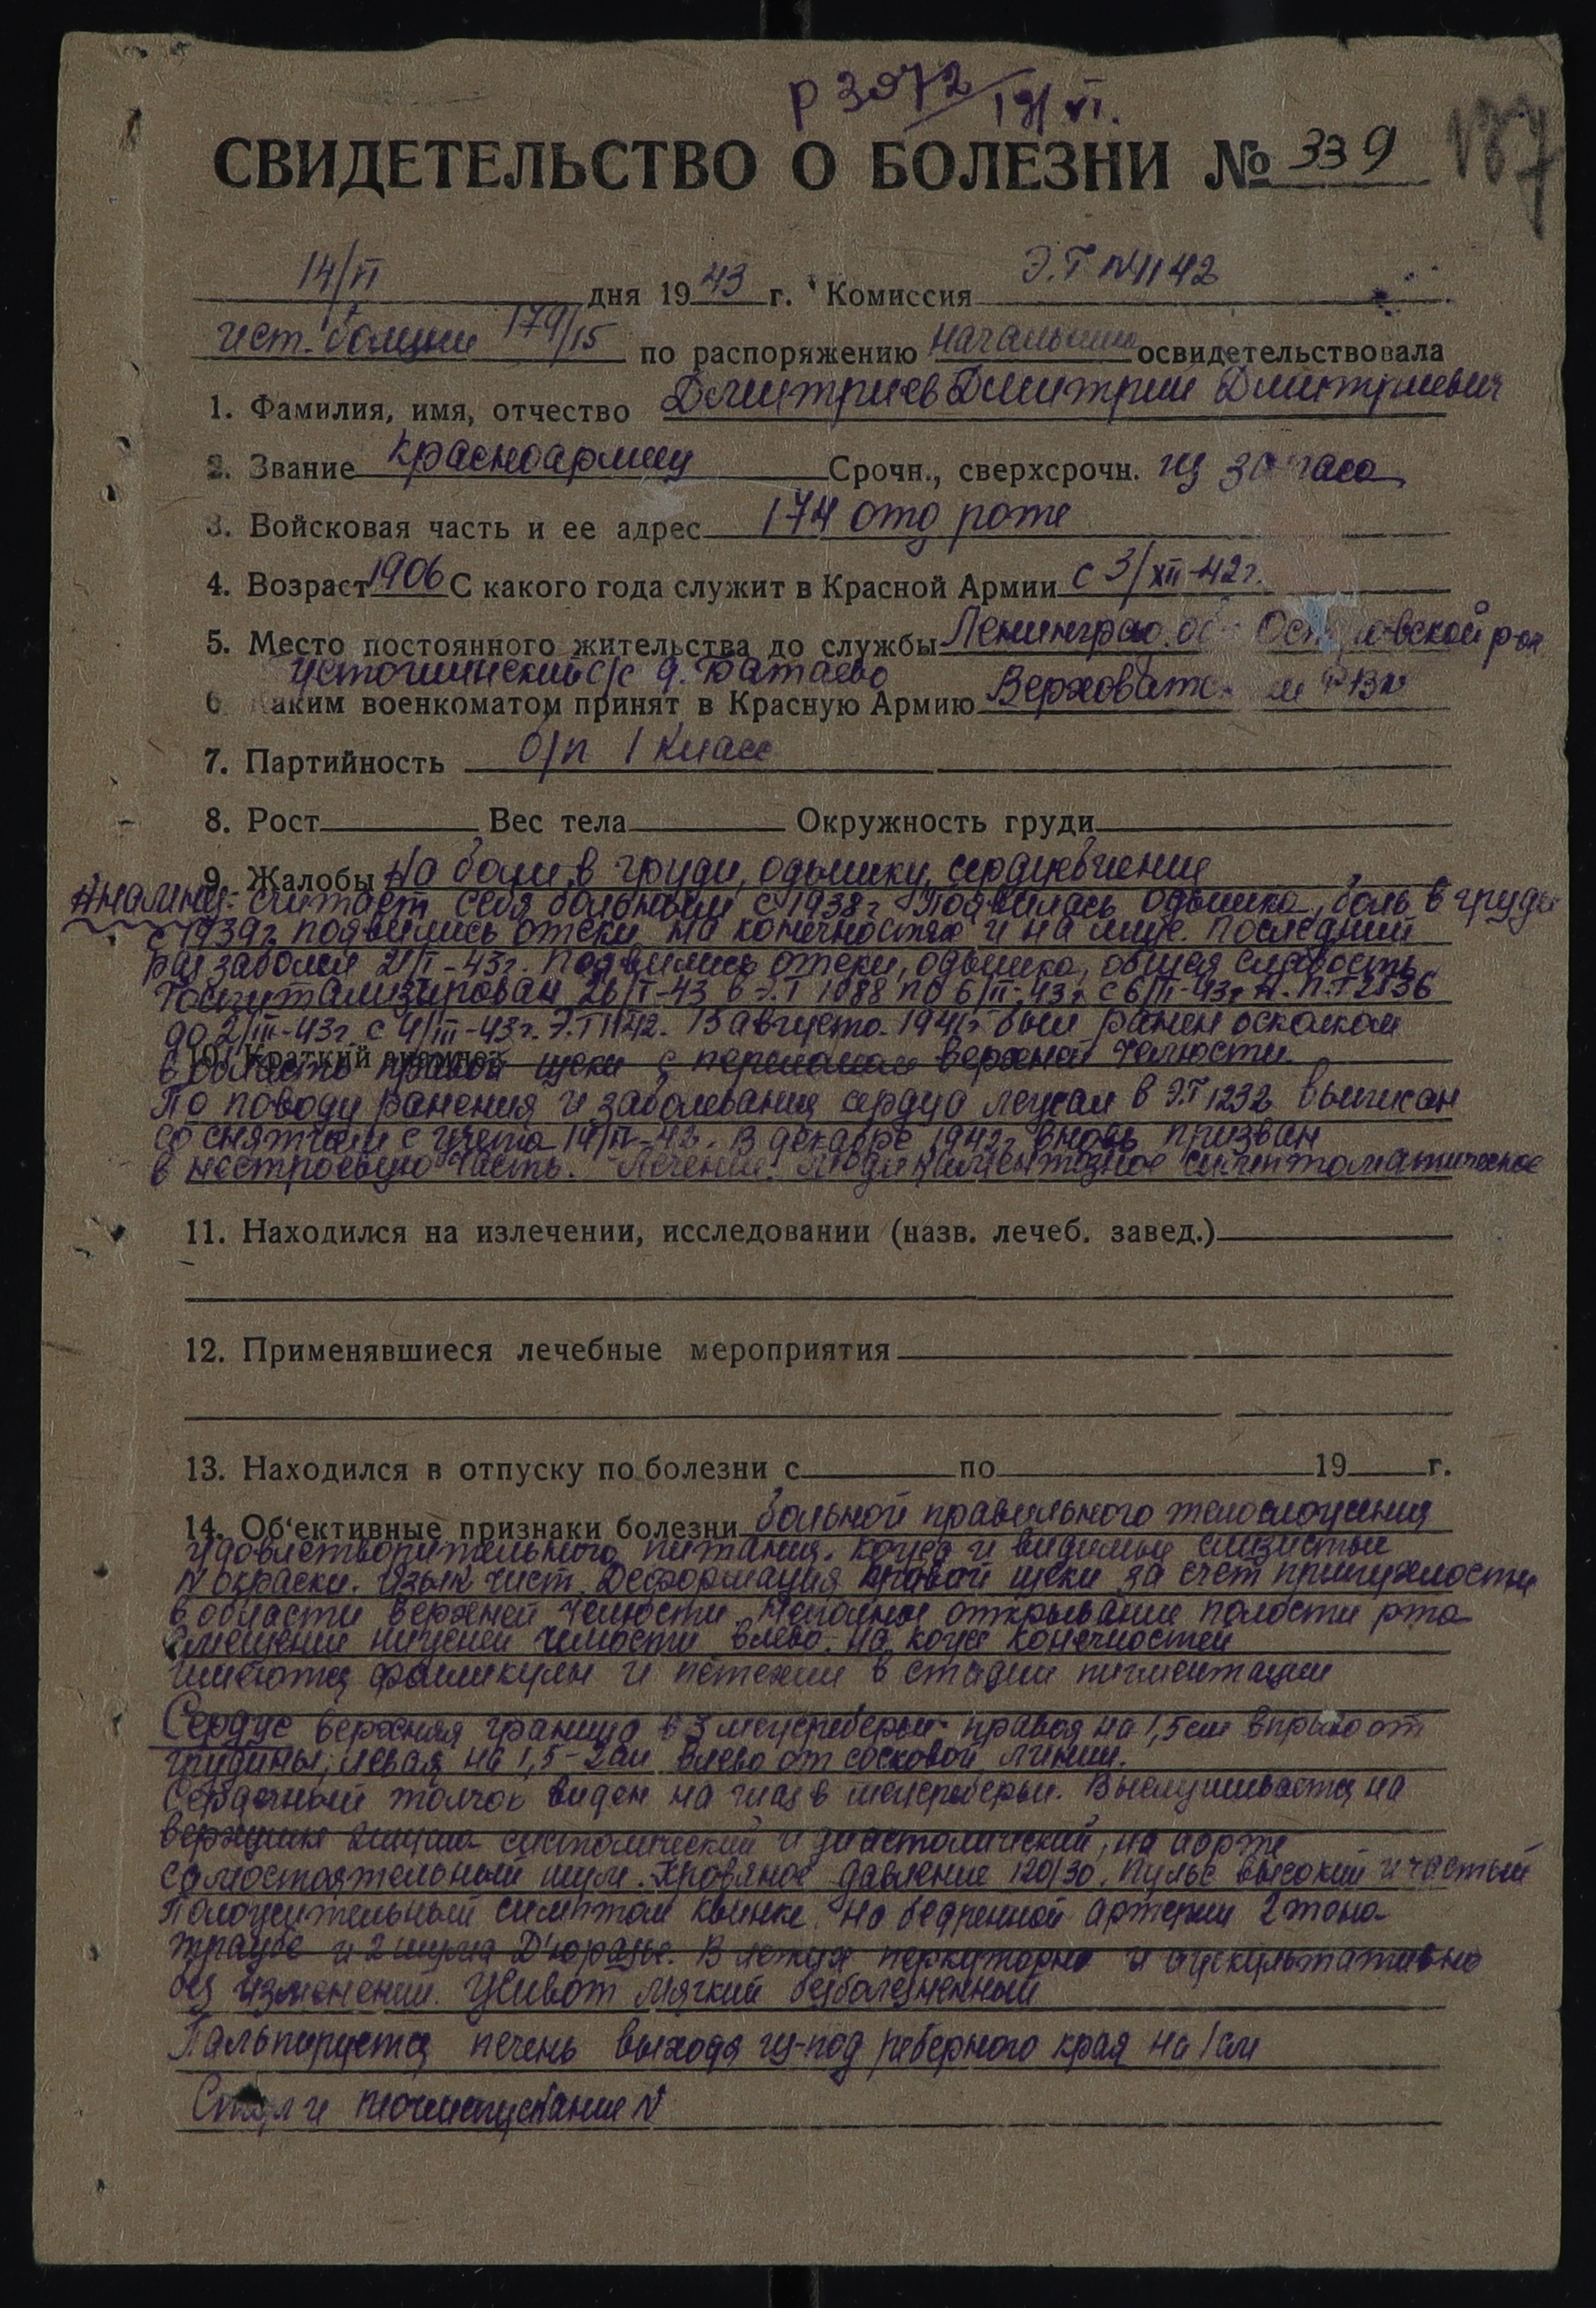 р 3972 19/VI.
187
СВИДЕТЕЛЬСТВО О БОЛЕЗНИ № 339
14/VI дня 1943 г. Комиссия Э.Г №1142
ист. болезни 179/15 по распоряжению начальника освидетельствовала
1. Фамилия, имя, отчество Дмитриев Дмитрий Дмитриевич
2. Звание красноармеец Срочн., сверхсрочн. из запаса
3. Войсковая часть и ее адрес 174 отд роте
4. Возраст 1906 С какого года служит в Красной Армии с 3/XII-42г.
5. Место постоянного жительства до службы Ленинград. об Островской р-он
с/с д. Батаево
6. Каким военкоматом принят в Красную Армию РВК
7. Партийность б/п 1 класс
8. Рост Вес тела Окружность груди
9. Жалобы на боли в груди, одышку, сердцебиение
Анамнез: считает себя больным с 1938г Появилась одышка, боль в груди
с 1939г появились отеки на конечностях и на лице. Последний
раз заболел 21/I-43г. Появились отеки, одышка, общая слабость
Госпитализирован 26/I-43 в Э.Г 1088 по 6/II-43г с 6/II-43г 2836
до 2/III-43г. с 4/III-43г. Э.Г 1142. В августе 1941г был ранен осколком
10. Краткий анамнез
в область правой щеки с переломом верхней челюсти.
По поводу ранения и заболевания сердца лежал в Э.Г 1232 выписан
со снятием с учета 14/IV-42. В декабре 1942г вновь призван
в нестроевую часть. Лечение: медикаментозное симптоматическое
11. Находился на излечении, исследовании (назв. лечеб. завед.)
12. Применявшиеся лечебные мероприятия
13. Находился в отпуску по болезни с по 19 г.
14. Об'ективные признаки болезни больной правильного телосложения
удовлетворительного питания. кожа и видимые слизистые
N окраски. Язык чист. Деформация правой щеки за счет припухлости
в области верхней челюсти. Неполное открывание полости рта
смещение нижней челюсти влево. На коже конечностей
имеются фолликулы и петехии в стадии пигментации
Сердце верхняя граница в 3 межреберьи правая на 1,5см вправо от
грудины, левая на 1,5-2см влево от сосковой линии.
Сердечный толчок виден на глаз в межреберьи. Выслушивается на
верхушке 2 шума систолический и диастолический, на аорте
самостоятельный шум. Кровяное давление 120/30. Пульс высокий и частый
Положительный симптом Квинке. На бедренной артерии 2 тона
Траубе и 2 шума Д'юразье. В легких перкуторно и аускультативно
без изменений. Живот мягкий безболезненный
Пальпируется печень выходя из-под реберного края на 1см
Стул и мочеиспускание N